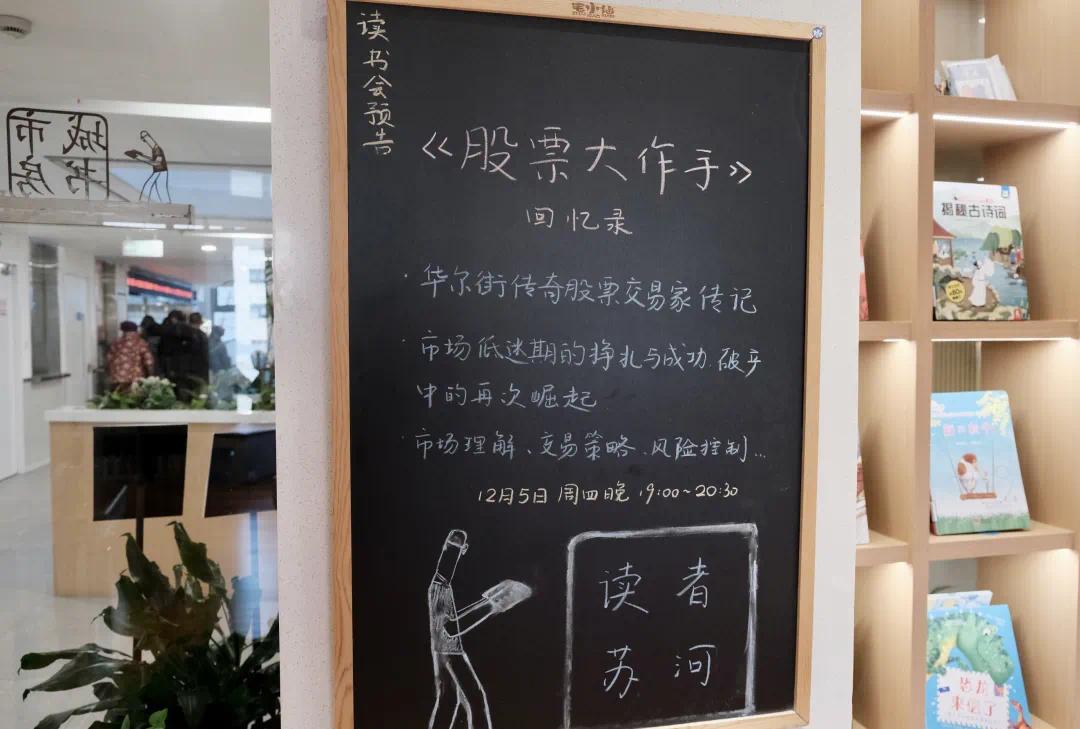 读书会预告
《股票大作手》
回忆录
·华尔街传奇股票交易家传记
·市场低迷期的挣扎与成功、破产
中的再次崛起
·市场理解、交易策略、风险控制...
12月5日 周四晚 19:00~20:30
读者
苏河
城市
书房
揭秘古诗词
恐龙
来信了